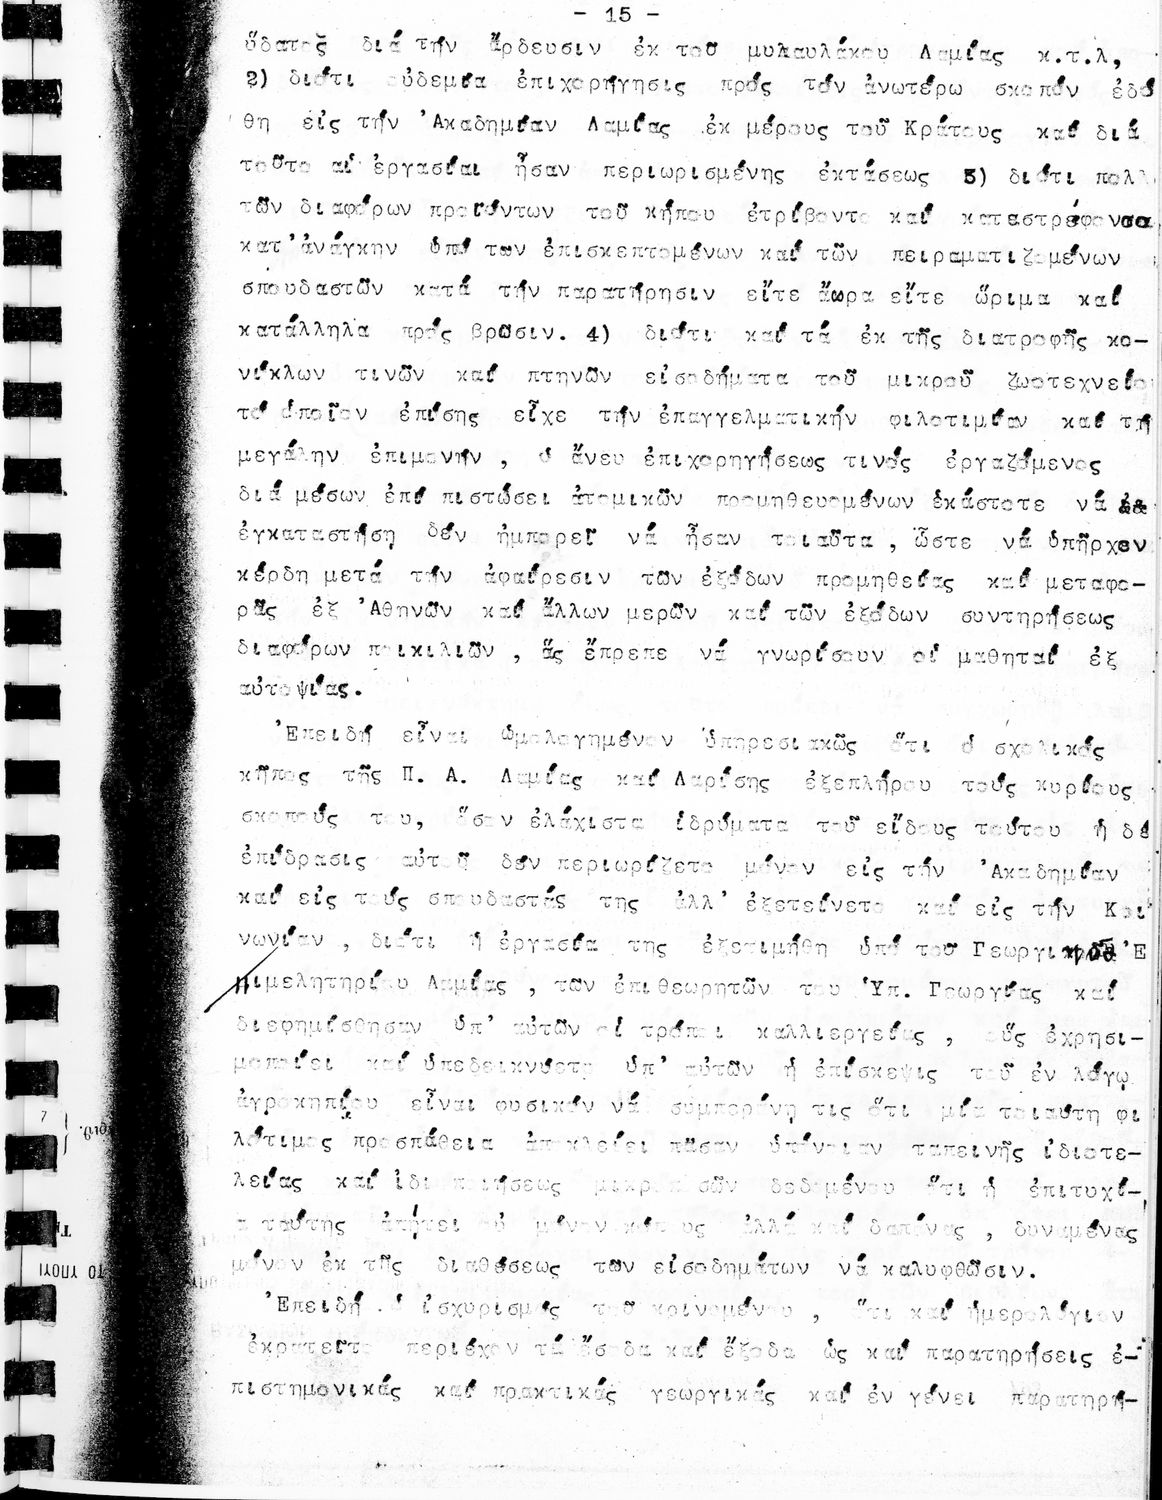 - 15 -
ὕδατος διά τήν ἄρδευσιν ἐκ τοῦ μυλαυλάκου Λαμίας κ.τ.λ,
2) διότι οὐδεμία ἐπιχορήγησις πρός τόν ἀνωτέρω σκοπόν ἐδό
θη εἰς τήν 'Ακαδημίαν Λαμίας ἐκ μέρους τοῦ Κράτους καί διά
τοῦτο αἱ ἐργασίαι ἦσαν περιωρισμένης ἐκτάσεως 3) διότι πολλ
τῶν διαφόρων προϊόντων τοῦ κήπου ἐτρίβοντο καί κατεστρέφοντο
κατ'ἀνάγκην ὑπό των ἐπισκεπτομένων καί τῶν πειραματιζομένων
σπουδαστῶν κατά τήν παρατήρησιν εἴτε ἄωρα εἴτε ὥριμα καί
κατάλληλα πρός βρῶσιν. 4) διότι καί τά ἐκ τῆς διατροφῆς κο-
νίκλων τινῶν καί πτηνῶν εἰσοδήματα τοῦ μικροῦ ζωοτεχνείο
τό ὁποῖον ἐπίσης εἶχε τήν ἐπαγγελματικήν φιλοτιμίαν καί τή
μεγάλην ἐπιμονήν , ὁ ἄνευ ἐπιχορηγήσεως τινός ἐργαζόμενος
διά μέσων ἐπί πιστώσει ἀτομικῶν προμηθευομένων ἑκάστοτε νά
ἐγκαταστήση δέν ἠμπορεῖ νά ἦσαν τοιαῦτα , ὥστε νά ὑπῆρχον
κέρδη μετά τήν ἀφαίρεσιν τῶν ἐξόδων προμηθείας καί μεταφο-
ρᾶς ἐξ 'Αθηνῶν καί ἄλλων μερῶν καί τῶν ἐξόδων συντηρήσεως
διαφόρων ποικιλιῶν , ἅς ἔπρεπε νά γνωρίσουν οἱ μαθηταί ἐξ
αὐτοψίας.
'Επειδή εἶναι ὡμολογημένον ὑπηρεσιακῶς ὅτι ὁ σχολικός
κῆπος τῆς Π. Α. Λαμίας καί Λαρίσης ἐξεπλήρου τούς κυρίους
σκοπούς του, ὅσον ἐλάχιστα ἱδρύματα τοῦ εἴδους τούτου ἡ δέ
ἐπίδρασις αὐτοῦ δέν περιωρίζετο μόνον εἰς τήν 'Ακαδημίαν
καί εἰς τούς σπουδαστάς της ἀλλ' ἐξετείνετο καί εἰς τήν Κοι
νωνίαν , διότι ἡ ἐργασία της ἐξετιμήθη ὑπό του Γεωργικοῦ 'Ε
πιμελητηρίου Λαμίας , τῶν ἐπιθεωρητῶν του Ὑπ. Γεωργίας καί
διεφημίσθησαν ὑπ' αὐτῶν οἱ τρόποι καλλιεργείας , οὕς ἐχρησι-
μοποίει καί ὑπεδεικνύετο ὑπ' αὐτῶν ἡ ἐπίσκεψις τοῦ ἐν λόγῳ
ἀγροκηπίου εἶναι φυσικόν νά συμπεράνη τις ὅτι μία τοιαύτη φι
λότιμος προσπάθεια ἀποκλείει πᾶσαν ὑπόνοιαν ταπεινῆς ἰδιοτε-
λείας καί ἰδιοποιήσεως μικροποσῶν δεδομένου ὅτι ἡ ἐπιτυχί-
α ταύτης ἀπήτει οὐ μόνον κόπους ἀλλά καί δαπάνας , δυναμένας
μόνον ἐκ τῆς διαθέσεως των εἰσοδημάτων νά καλυφθῶσιν.
'Επειδή ὁ ἰσχυρισμός τοῦ κρινομένου , ὅτι καί ἡμερολόγιον
ἐκρατεῖτο περιέχον τά ἔσοδα καί ἔξοδα ὡς καί παρατηρήσεις ἐ-
πιστημονικάς καί πρακτικάς γεωργικάς καί ἐν γένει παρατηρή-